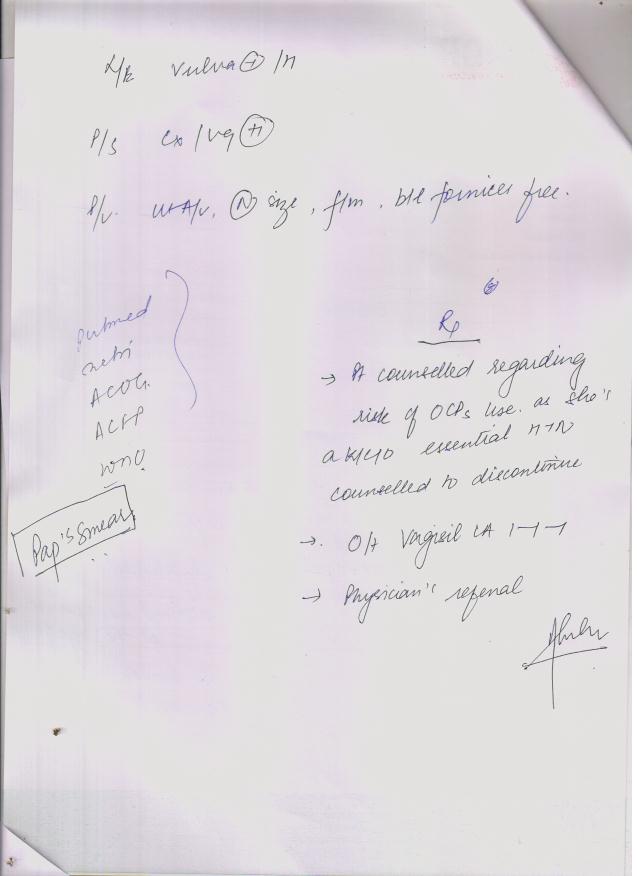 L/E vulva (H) /N
P/S Cx / vg (H)
P/V. Ut A/V, (N) size, firm, b/l fornices free.
Pubmed
ncbi
ACOG.
ACFP
WHO
Pap's Smear
Rx
→ Pt counselled regarding
risk of OCPs use. as she's
a K/C/O essential HTN
counselled to discontinue
→. O/A LA 1-1-1
→ Physician's referral